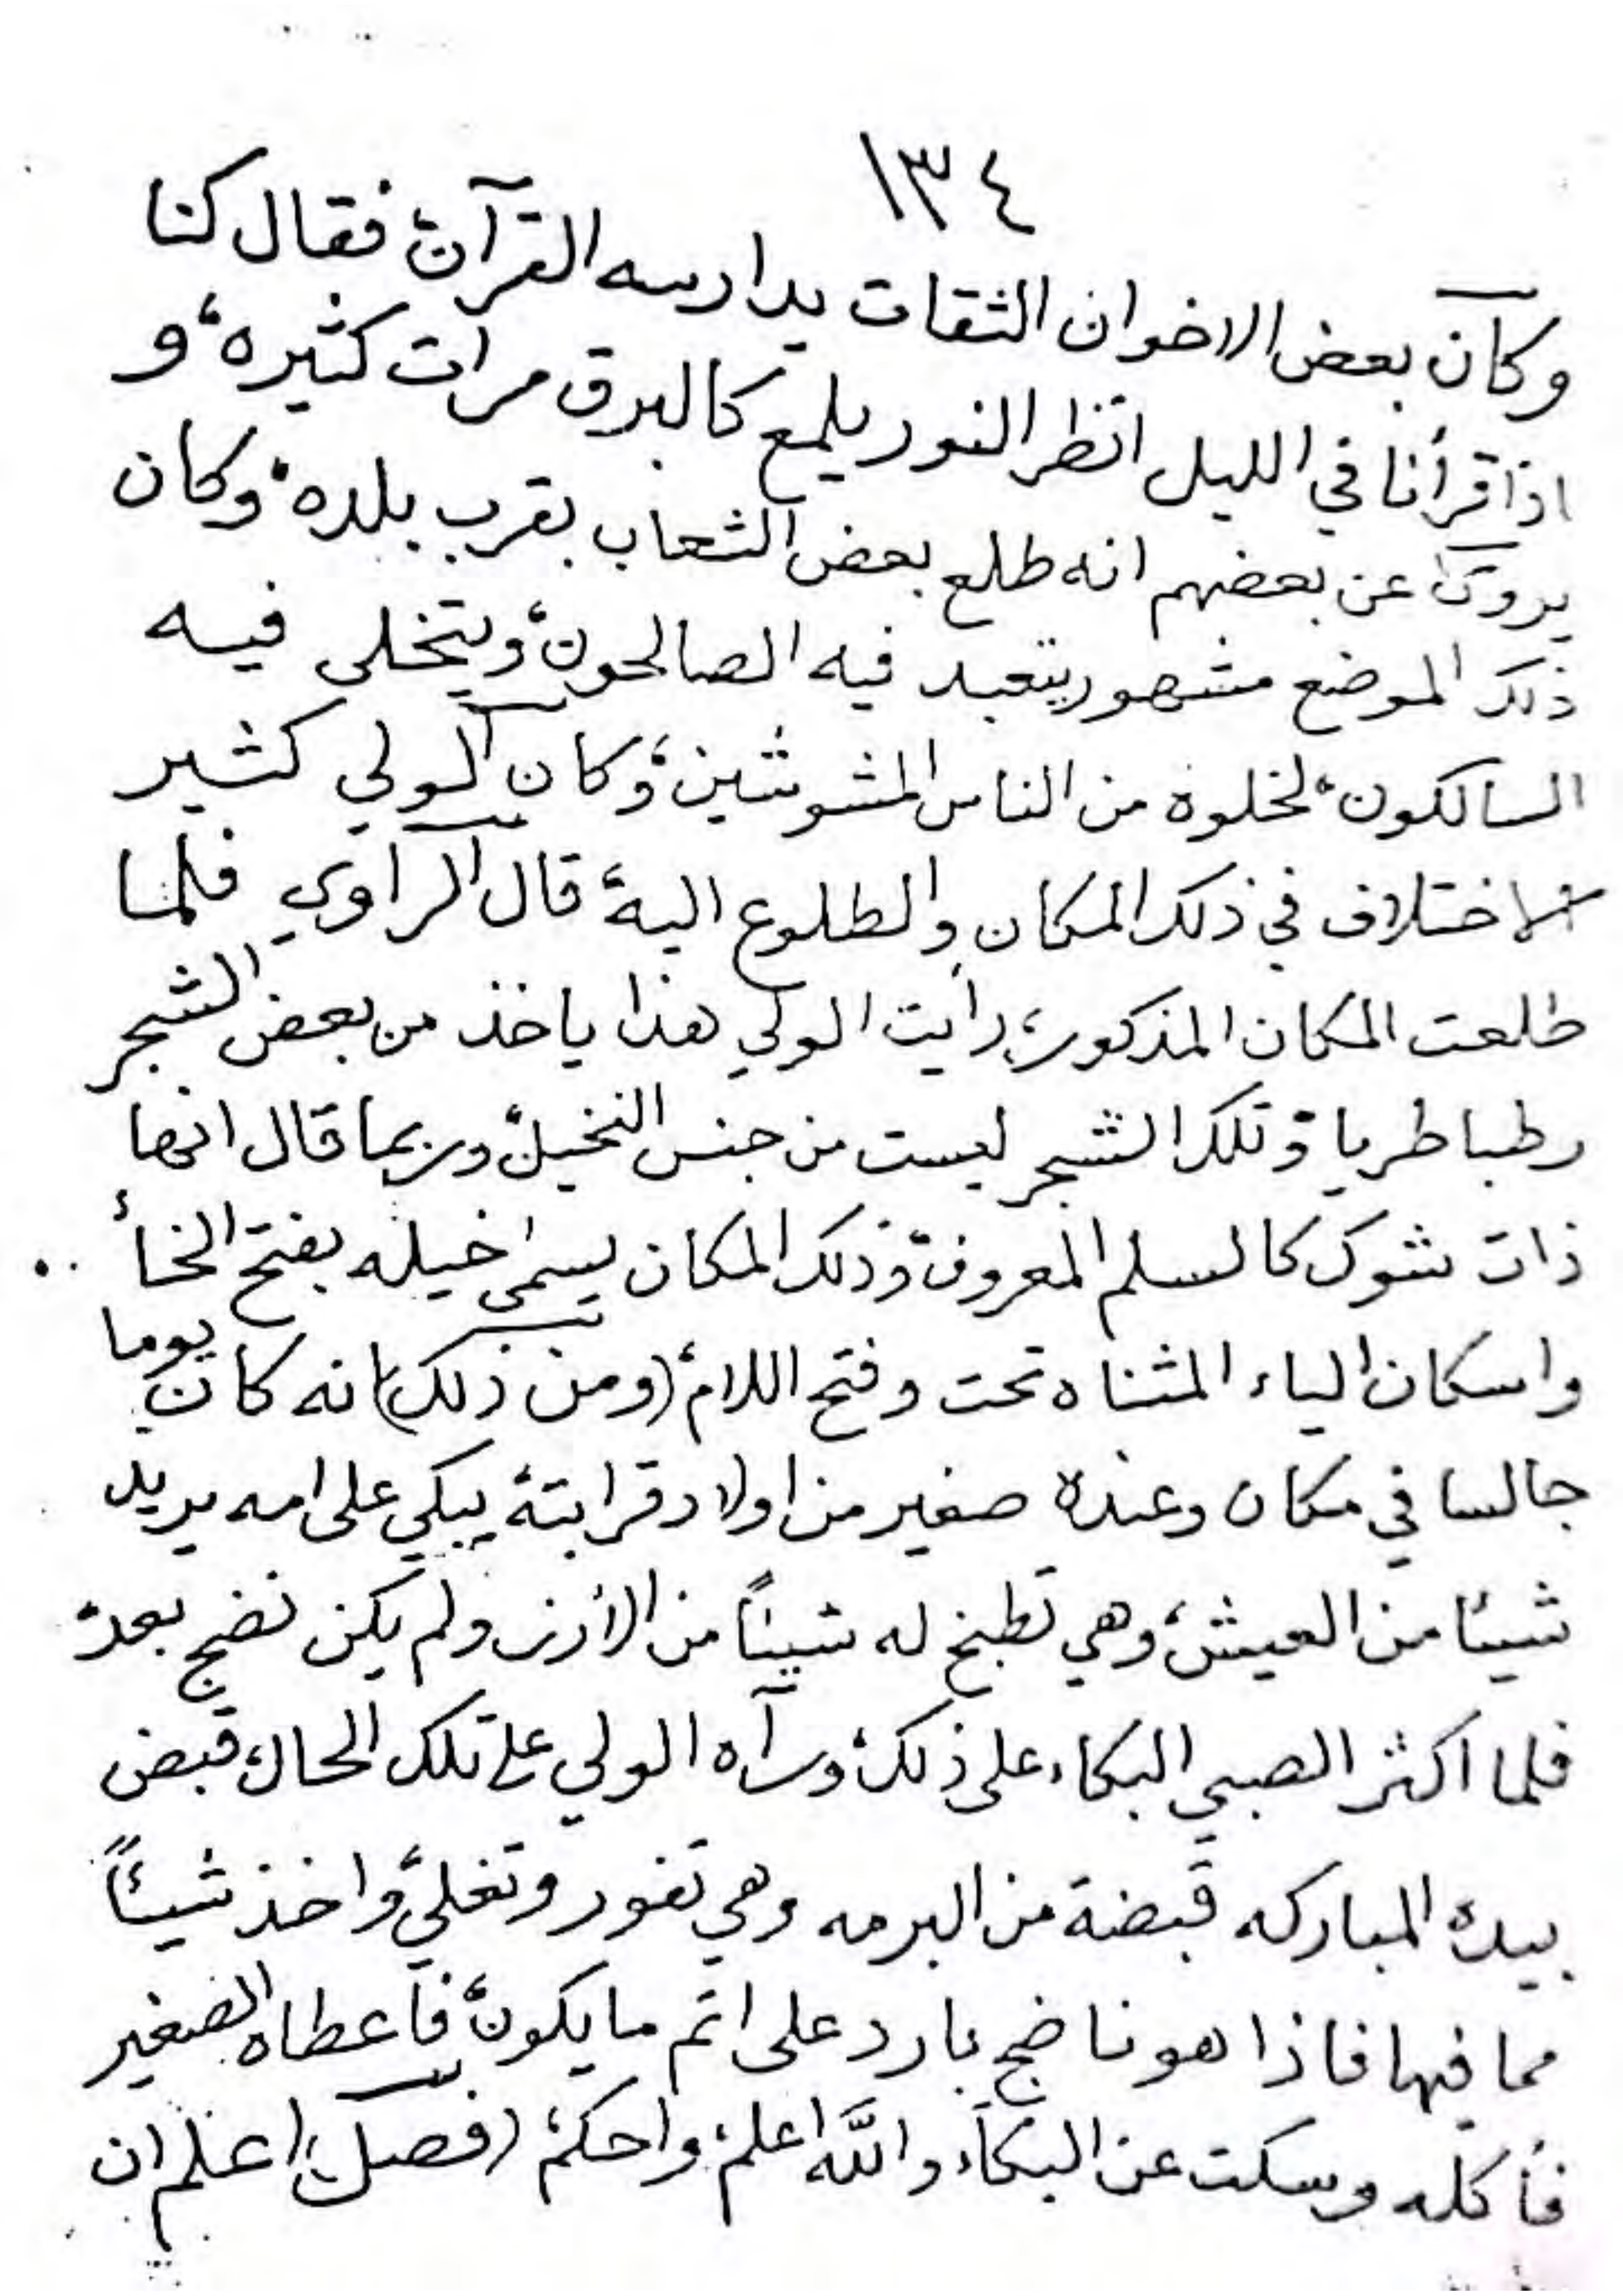 ١٣٤
وكان بعض الاخوان الثقات يدارسه القرآن، فقال كنا
اذا قرأنا في الليل انظر النور يلمع كالبرق مرات كثيره، و
يروى عن بعضهم انه طلع بعض الشعاب بقرب بلده، وكان
ذلك الموضع مشهور يتعبد فيه الصالحون، ويتخلى فيه
السالكون، لخلوه من الناس المشوشين، وكان الولي كثير
الاختلاف في ذلك المكان والطلوع اليه، قال الراوي فلما
طلعت المكان المذكور، رايت الولي هذا ياخذ من بعض الشجر
رطبا طريا، وتلك الشجر ليست من جنس النخيل، وربما قال انها
ذات شوك كالسلم المعروف، وذلك المكان يسمى خيله بفتح الخأ
واسكان الياء المثناه تحت وفتح اللام، (ومن ذلك) انه كان يوما
جالسا في مكان وعنده صغير من اولاد قرابته يبكي على امه يريد
شيئا من العيش، وهي تطبخ له شيئاً من الأرز ولم يكن نضج بعد،
فلما اكثر الصبي البكاء على ذلك، ورآه الولي على تلك الحال، قبض
بيده المباركه قبضة من البرمه وهي تفور وتغلي، واخذ شيئاً
مما فيها فاذا هو ناضج بارد على اتم ما يكون، فأعطاه الصغير
فأكله وسكت عن البكاء، والله اعلم، واحكم، (فصل) اعلم ان